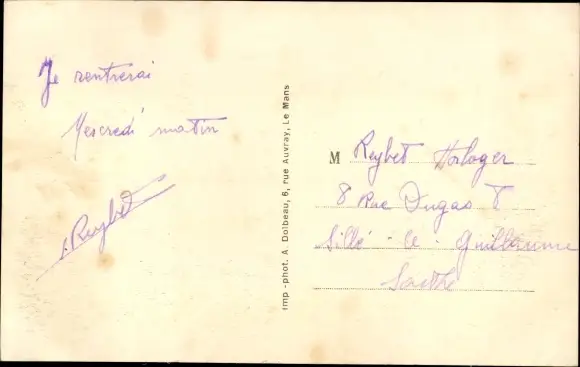 Je rentrerai
Mercredi matin
Reybet
Imp-phot. A. Dolbeau, 6, rue Auvray, Le Mans
M Reybet Horloger
8 Rue Dugas 8
Sillé-le-Guillaume
Sarthe